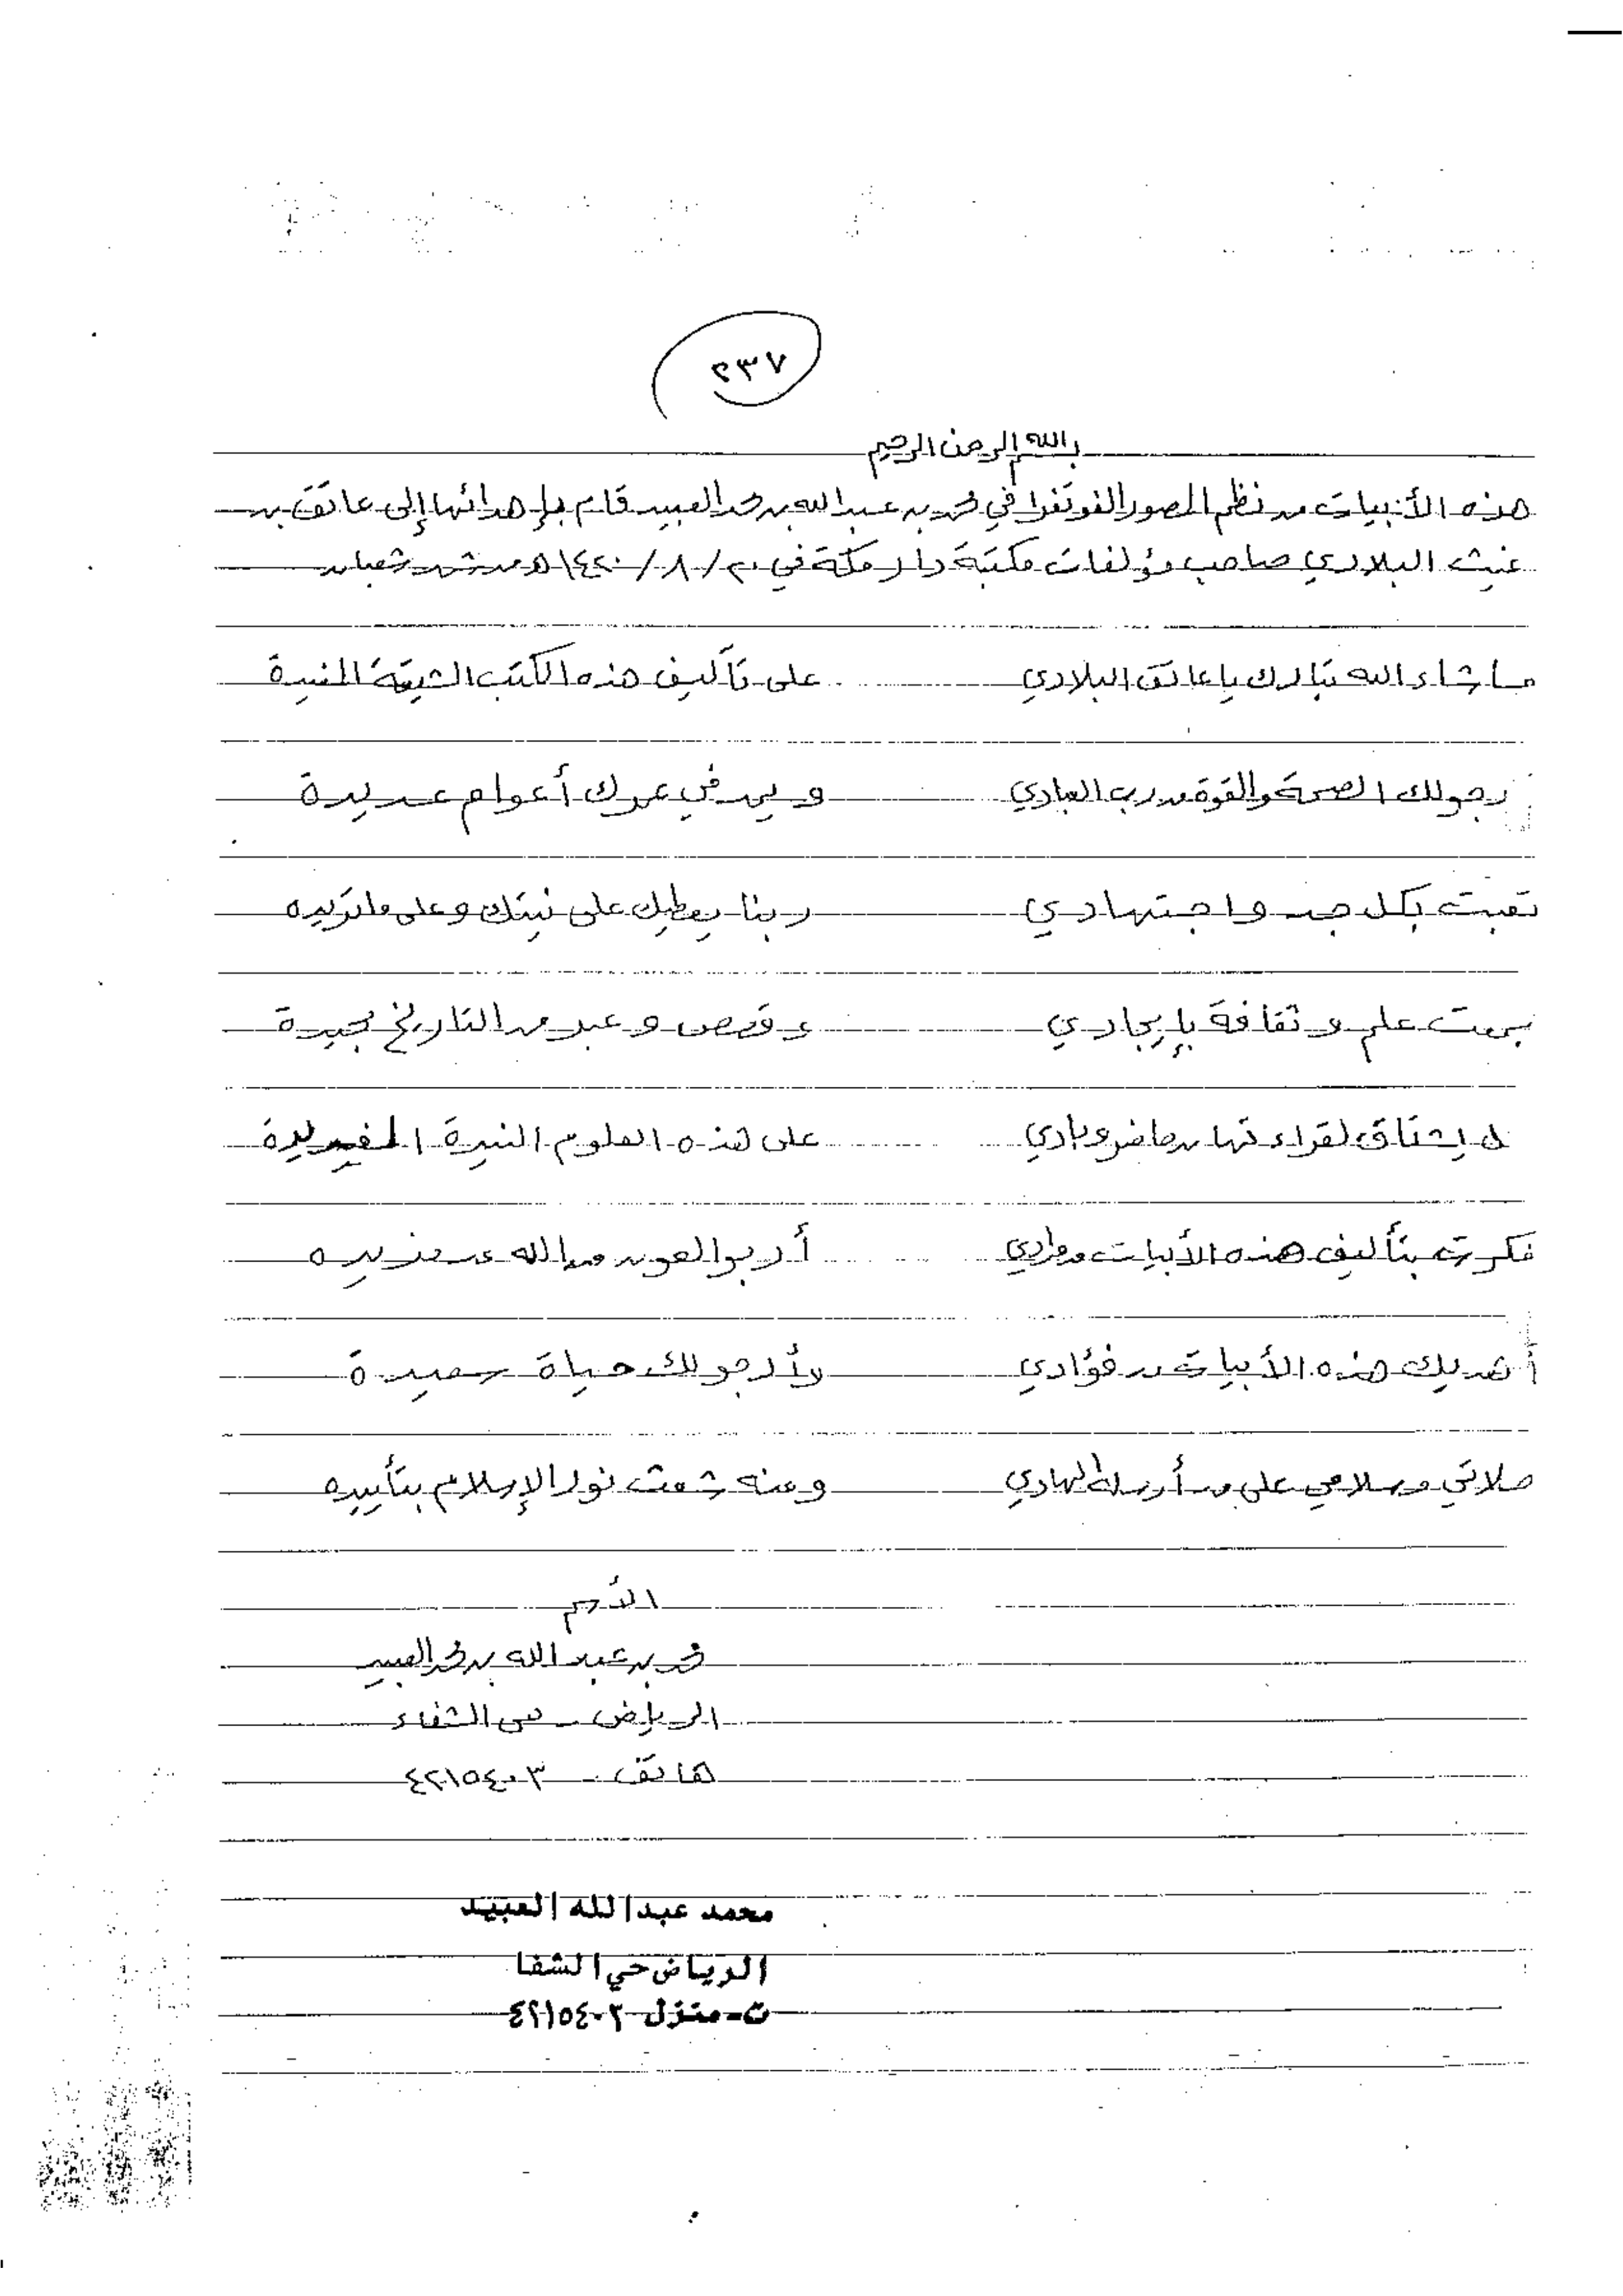 ٢٣٧
بسم الله الرحمن الرحيم
هذه الأبيات من نظم المصور الفوتغرافي محمد بن عبد الله بن محمد العبيد قام بإهدائها إلى عاتق بن
غيث البلادي صاحب مؤلفات مكتبة دار مكة في ٢٠/٨/١٤٢٠هـ من شهر شعبان
ما شاء الله تبارك يا عاتق البلادي على تأليف هذه الكتب الشيقة المنيرة
رجو لك الصحة والقوة من رب العبادي ويمد في عمرك أعوام عديدة
تعبت بكل جد واجتهادي ربنا يعطيك على نيتك وعلى ما تريده
علم وثقافة بإيجادي وقصص وعبر من التاريخ مجيدة
يشتاق لقراءتها من حاضر وبادي على هذه العلوم النيرة المفيدة
فكرت بتأليف هذه الأبيات مرادي أرجوا العون من الله
أهديك هذه الأبيات من فؤادي وأرجو لك حياة سعيدة
صلاتي وسلامي على من أرسله الهادي ومنه شعت نور الإسلام بتأييده
محمد بن عبد الله بن محمد العبيد
الرياض - حي الشفاء
هاتف - ٤٢١٥٤٠٣
محمد عبدالله العبيد
الرياض حي الشفا
ت-منزل ٤٢١٥٤٠٣